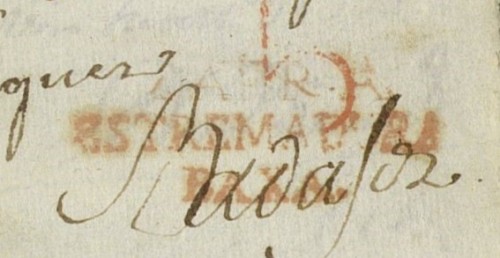 quez
ZAFRA
ESTREMADURA
BAXA.
Badajoz